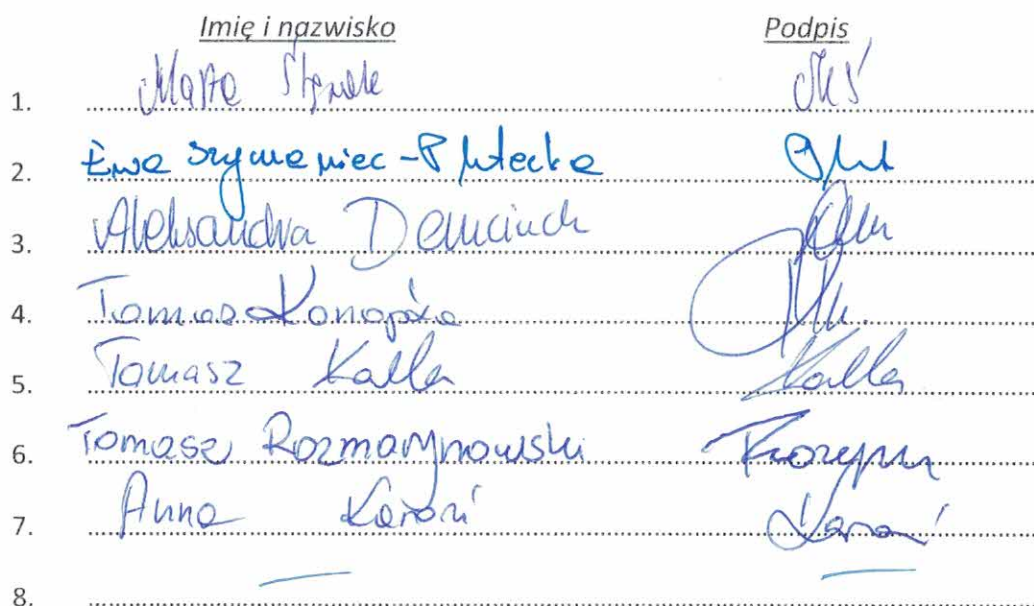 Imię i nazwisko Podpis
1. Marta
2. Ewa Szymaniec-Plutecka
3. Aleksandra Demciuch
4. Tomasz Konopka
5. Tomasz Kalla Kalla
6. Tomasz Rozmarynowski
7. Anna Karoń Karoń
8.